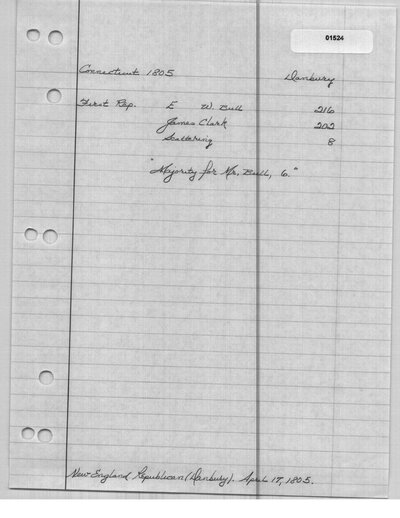 01524
Connecticut 1805 Danbury
First Rep. E W. Bull 216
James Clark 202
Scattering 8
"Majority for Mr. Bull, 6."
New England Republican (Danbury). April 17, 1805.